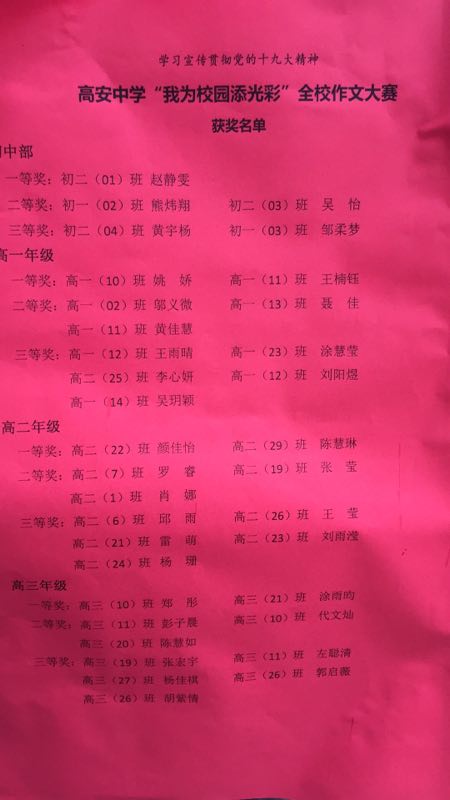 学习宣传贯彻党的十九大精神
高安中学“我为校园添光彩”全校作文大赛
获奖名单
初中部
一等奖：初二（01）班 赵静雯
二等奖：初一（02）班 熊炜翔 初二（03）班 吴 怡
三等奖：初二（04）班 黄宇杨 初一（03）班 邹柔梦
高一年级
一等奖：高一（10）班 姚 娇 高一（11）班 王楠钰
二等奖：高一（02）班 邬义微 高一（13）班 聂 佳
高一（11）班 黄佳慧
三等奖：高一（12）班 王雨晴 高一（23）班 涂慧莹
高二（25）班 李心妍 高一（12）班 刘阳煜
高一（14）班 吴玥颖
高二年级
一等奖：高二（22）班 颜佳怡 高二（29）班 陈慧琳
二等奖：高二（7）班 罗 睿 高二（19）班 张 莹
高二（1）班 肖 娜
三等奖：高二（6）班 邱 雨 高二（26）班 王 莹
高二（21）班 雷 萌 高二（23）班 刘雨滢
高二（24）班 杨 珊
高三年级
一等奖：高三（10）班 郑 彤 高三（21）班 涂雨昀
二等奖：高三（11）班 彭子晨 高三（10）班 代文灿
高三（20）班 陈慧如
三等奖：高三（19）班 张宏宇 高三（11）班 左聪清
高三（27）班 杨佳棋 高三（26）班 郭启薇
高三（26）班 胡紫情